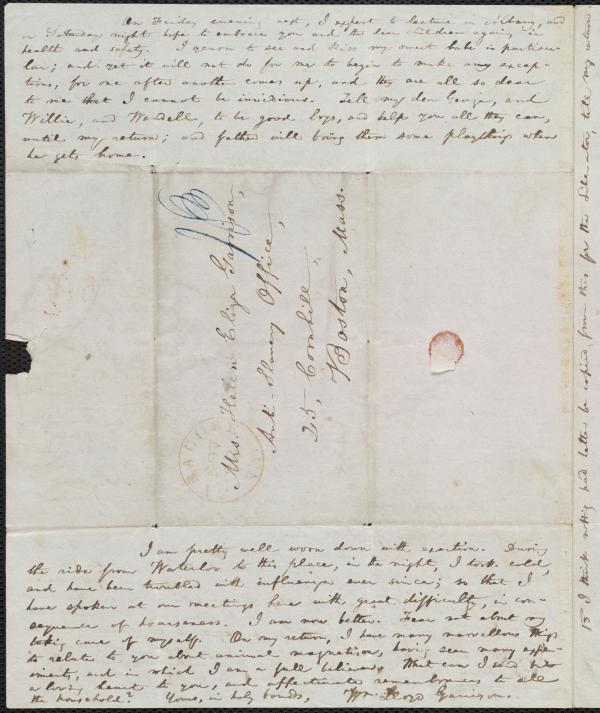 On Friday evening next, I expect to lecture in Albany, and
on Saturday night hope to embrace you and the dear children again, in
health and safety. I yearn to see and kiss my sweet babe in particu-
lar; and yet it will not do for me to begin to make any excep-
tions, for one after another comes up, and they are all so dear
to me that I cannot be invidious. Tell my dear George, and
Willie, and Wendell, to be good boys, and help you all they can,
until my return; and father will bring them some playthings when
he gets home.
Mrs. Helen Eliza Garrison,
Anti-Slavery Office,
25, Cornhill,
Boston, Mass.
NOV
I am pretty well worn down with exertion. During
the ride from Waterloo to this place, in the night, I took cold,
and have been troubled with influenza ever since; so that I
have spoken at our meetings here with great difficulty, in con-
sequence of hoarseness. I am now better. Fear not about my
taking care of myself. On my return, I have many marvellous things
to relate to you about animal magnetism, having seen many expe-
riments, and in which I am a full believer. What can I send but
a loving heart to you, and affectionate remembrances to all
the household? Yours, in holy bonds, Wm. Lloyd Garrison.
I think nothing had better be copied, from this for the Liberator, till my return